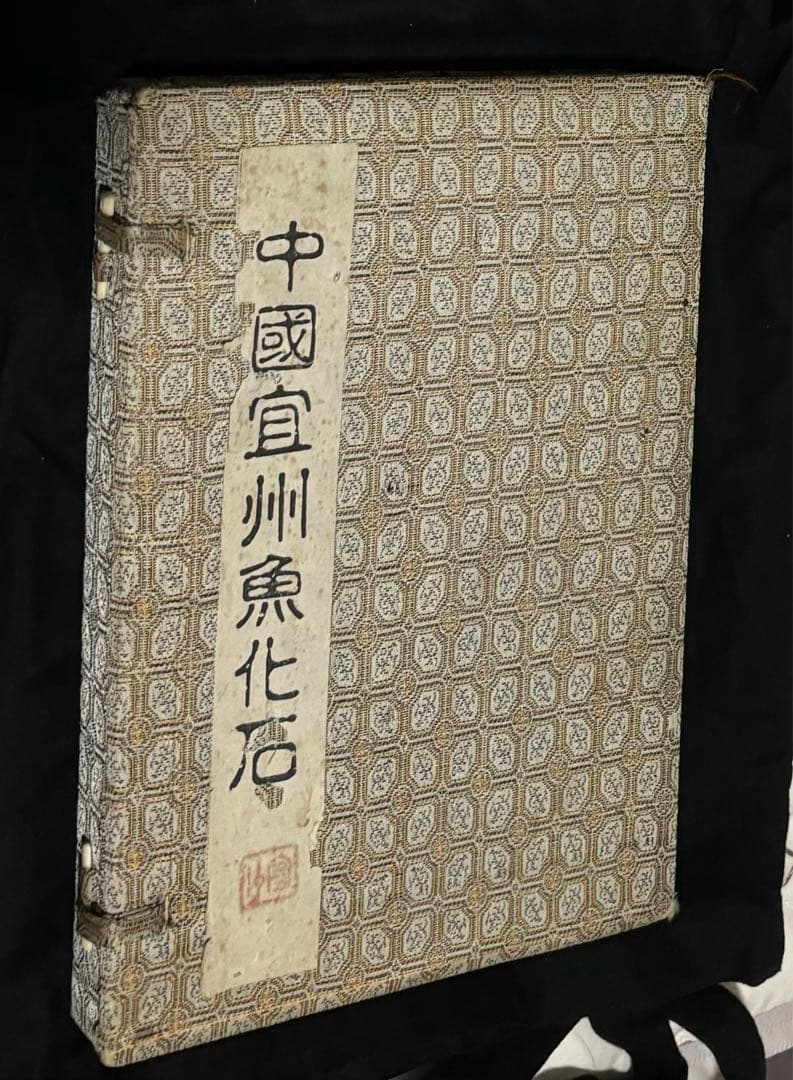 中國宜州魚化石